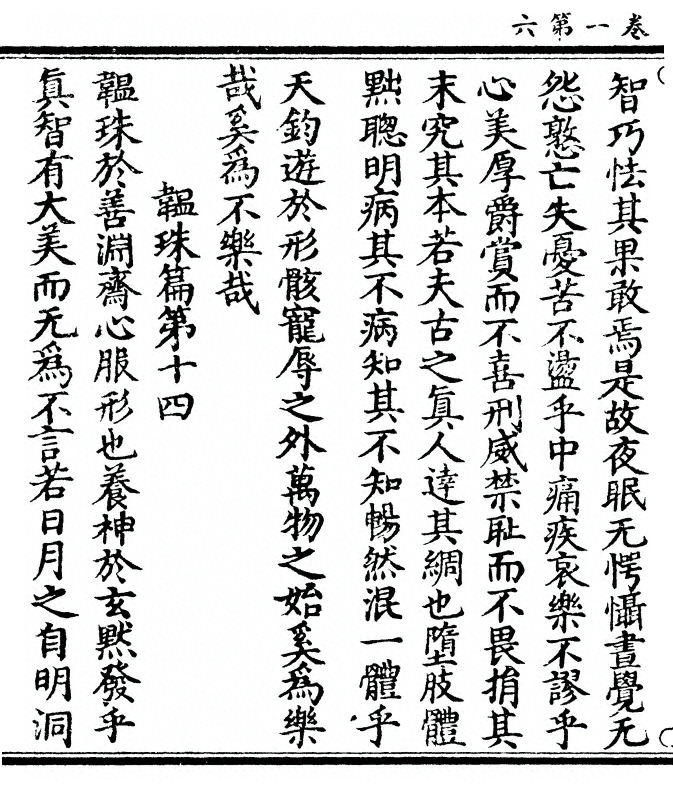 卷一第六
智巧怯其果敢焉是故夜眠无愕懾晝覺无
怨憝亡失憂苦不盪乎中痛疾哀樂不謬乎
心美厚爵賞而不喜刑威禁耻而不畏捐其
末究其本若夫古之真人達其綢也墮肢體
黜聰明病其不病知其不知暢然混一體乎
天鈞遊於形骸寵辱之外萬物之始奚為樂
哉奚為不樂哉
韞珠篇第十四
韞珠於善淵齋心服形也養神於玄默發乎
真智有大美而无為不言若日月之自明洞